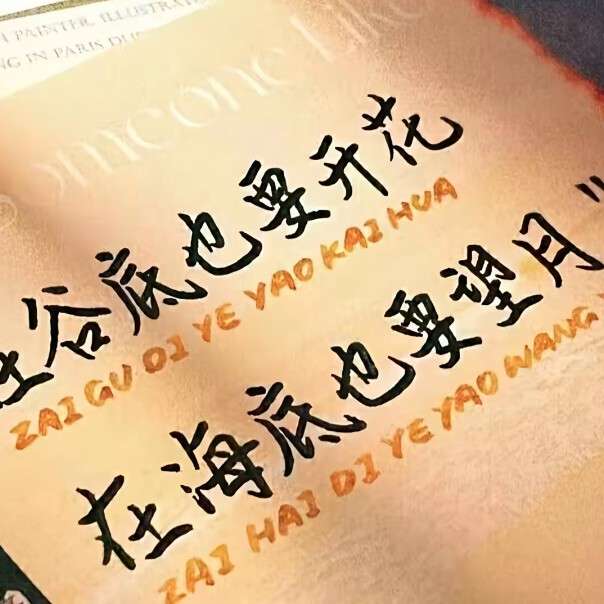 A PAINTER, ILLUSTRAT
NG IN PARIS DU
omeone Like
在谷底也要开花
ZAI GU DI YE YAO KAI HUA
在海底也要望月”
ZAI HAI DI YE YAO WANG